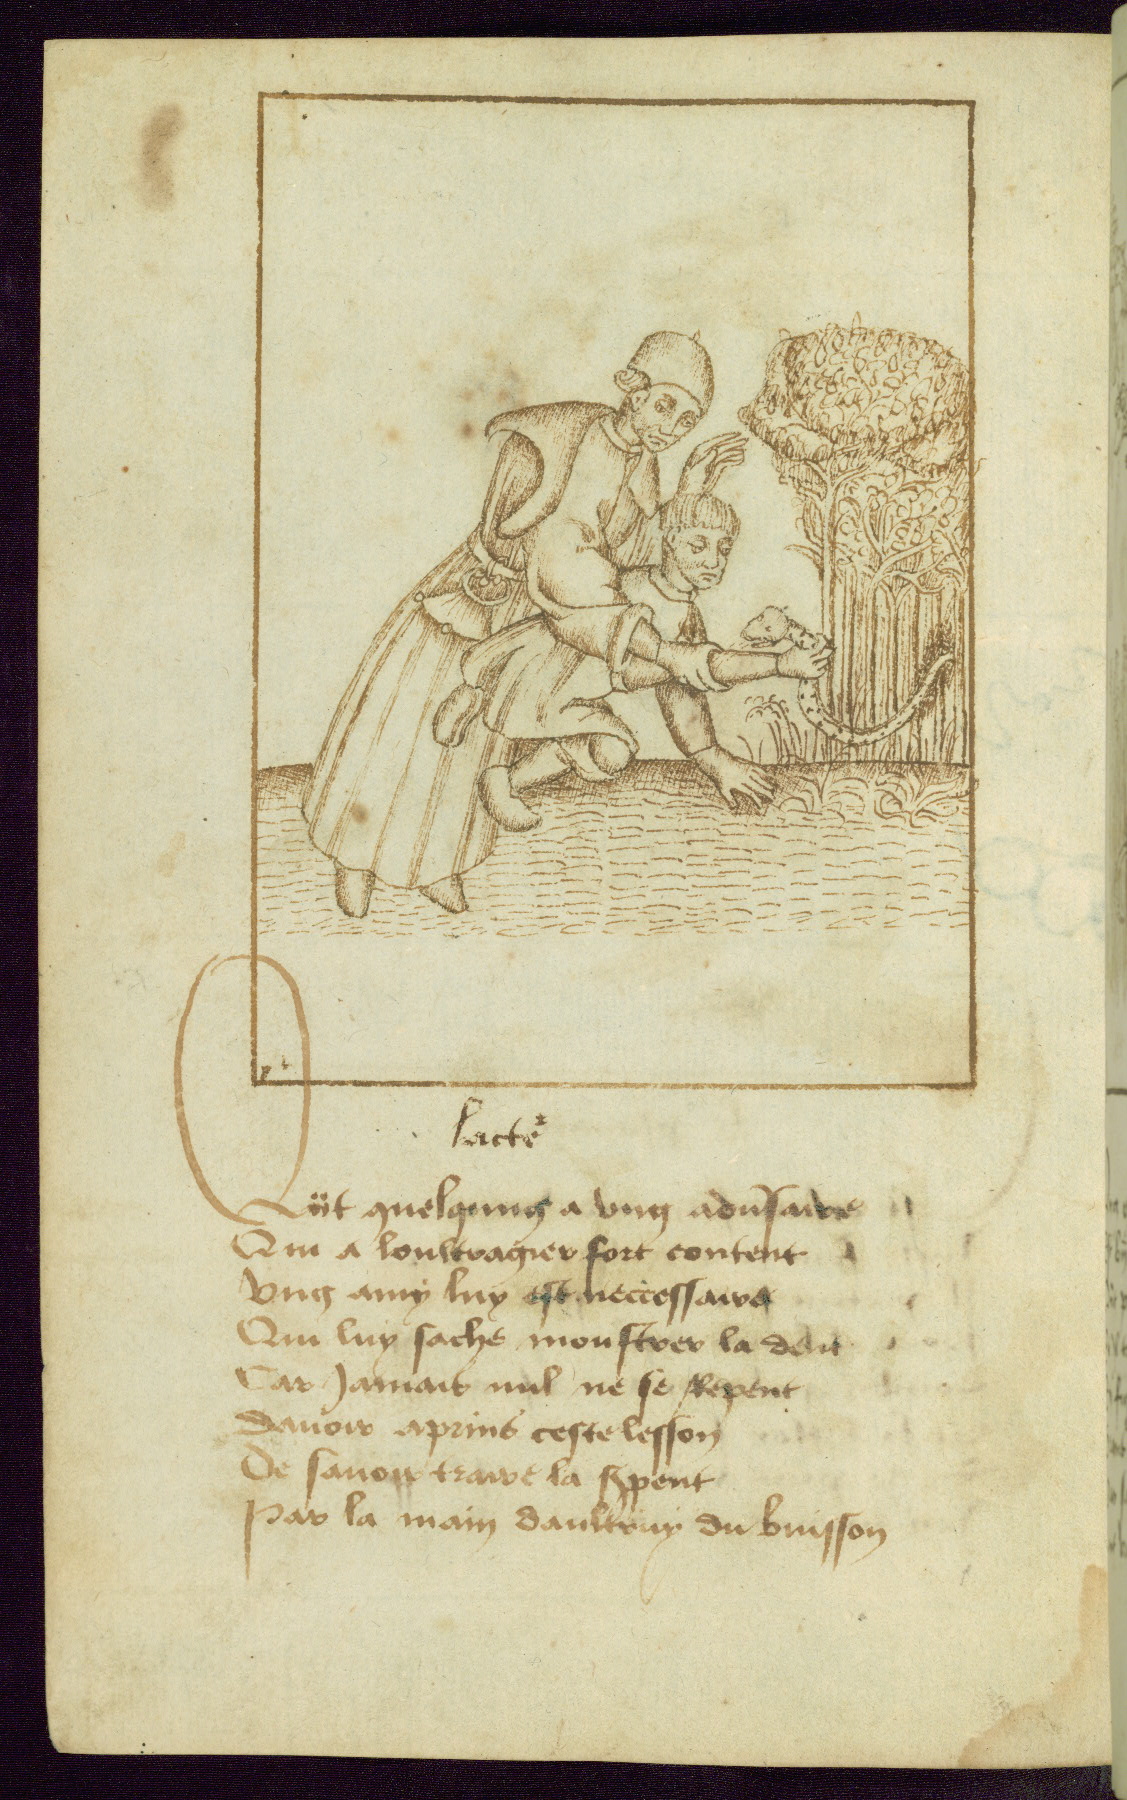 lacteˣ
Qüt quelqung a vng aduˢaire
Qui a loultragier fort content
Vng amy luy est neccessaire
Qui luy sache monstrer la dent
Car Jamais nul ne se Repent
Dauoir aprins ceste lesson
De sauoir traire la sꝑpent
Par la main daultruy du buisson